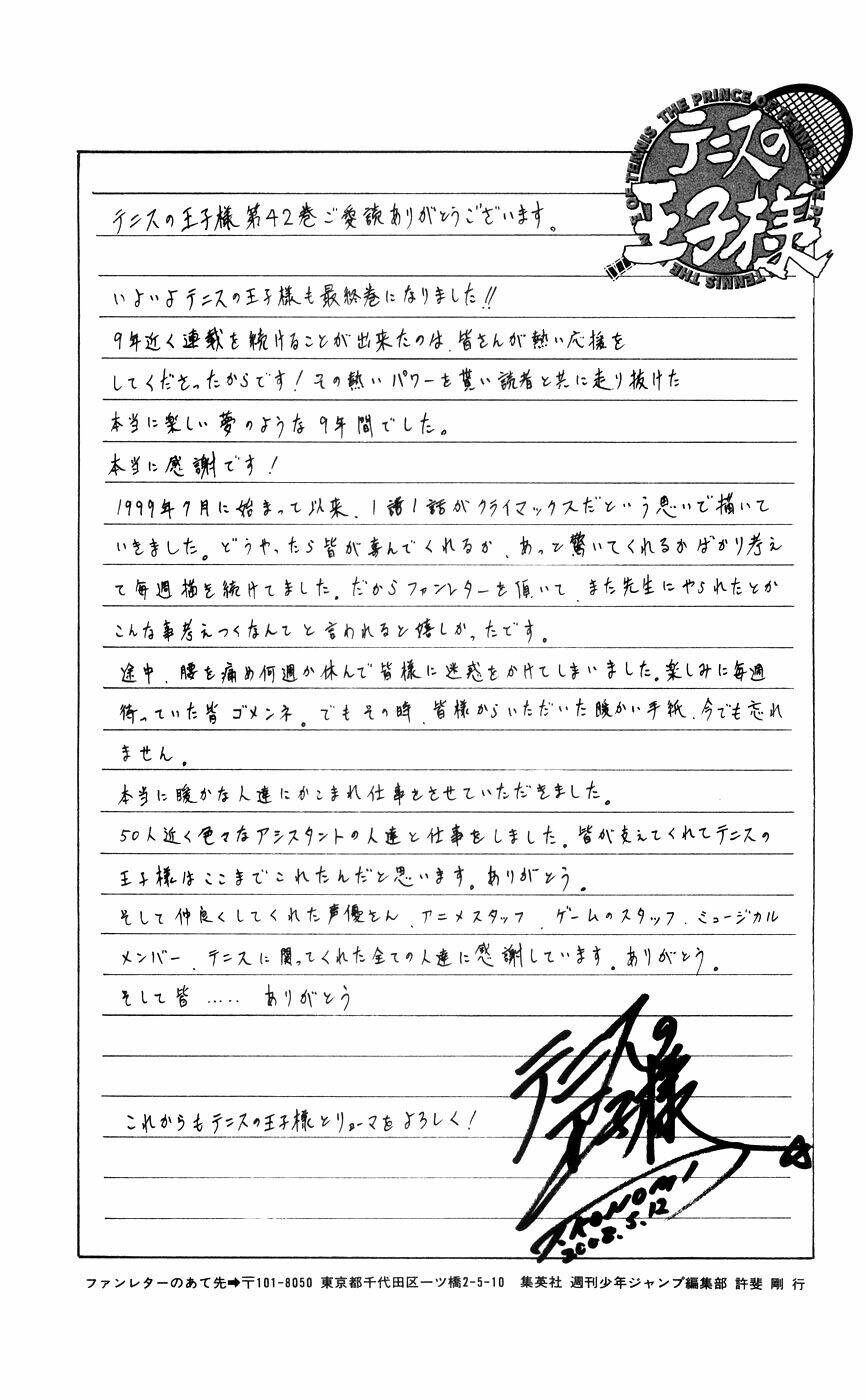 THE PRINCE OF TENNIS
テニスの
王子様
テニスの王子様第42巻ご愛読ありがとうございます。
いよいよテニスの王子様も最終巻になりました!!
9年近く連載を続けることが出来たのは、皆さんが熱い応援を
してくださったからです！その熱いパワーを貰い読者と共に走り抜けた
本当に楽しい夢のような9年間でした。
本当に感謝です！
1999年7月に始まって以来、1話1話がクライマックスだという思いで描いて
いきました。どうやったら皆が喜んでくれるか、あっと驚いてくれるかばかり考え
て毎週描き続けてました。だからファンレターを頂いて、また先生にやられたとか
こんな事考えつくなんてと言われると嬉しかったです。
途中、腰を痛め何週か休んで皆様に迷惑をかけてしまいました。楽しみに毎週
待っていた皆ゴメンネ。でもその時、皆様からいただいた暖かい手紙、今でも忘れ
ません。
本当に暖かな人達にかこまれ仕事をさせていただきました。
50人近く色々なアシスタントの人達と仕事をしました。皆が支えてくれてテニスの
王子様はここまでこれたんだと思います。ありがとう。
そして仲良くしてくれた声優さん、アニメスタッフ、ゲームのスタッフ、ミュージカル
メンバー、テニスに関ってくれた全ての人達に感謝しています。ありがとう。
そして皆…‥ ありがとう
これからもテニスの王子様とリョーマをよろしく！
テニスの
王子様
T.KONOMI
2008.5.12
ファンレターのあて先➡〒101-8050 東京都千代田区一ツ橋2-5-10 集英社 週刊少年ジャンプ編集部 許斐 剛 行